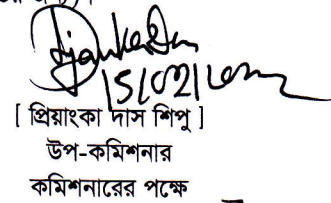 [ প্রিয়াংকা দাস শিপু ]
উপ-কমিশনার
কমিশনারের পক্ষে